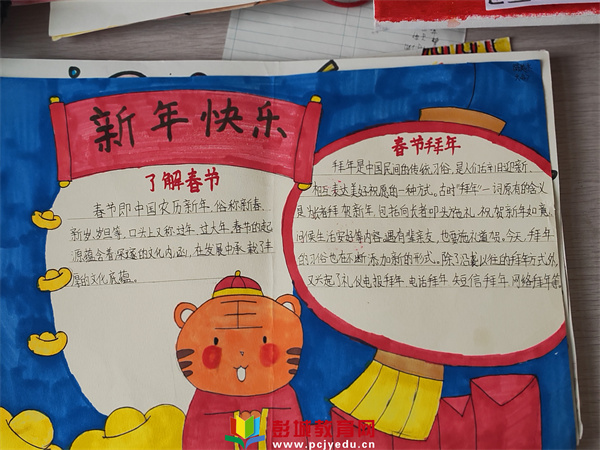 新年快乐
了解春节
春节即中国农历新年，俗称新春、
新岁、岁旦等，口头上又称过年、过大年。春节的起
源蕴含着深邃的文化内涵，在发展中承载了丰
厚的文化底蕴。
春节拜年
拜年是中国民间的传统习俗，是人们辞旧迎新、
相互表达美好祝愿的一种方式。古时"拜年"一词原有的含义
是为长者拜贺新年，包括向长者叩头施礼、祝贺新年如意、
问候生活安好等内容。遇有辈亲友，也要施礼道贺。今天，拜年
的习俗也在不断添加新的形式。除了沿袭以往的拜年方式外，
又兴起了礼仪电报拜年、电话拜年、短信拜年、网络拜年等
彭城教育网
www.pcjyedu.cn